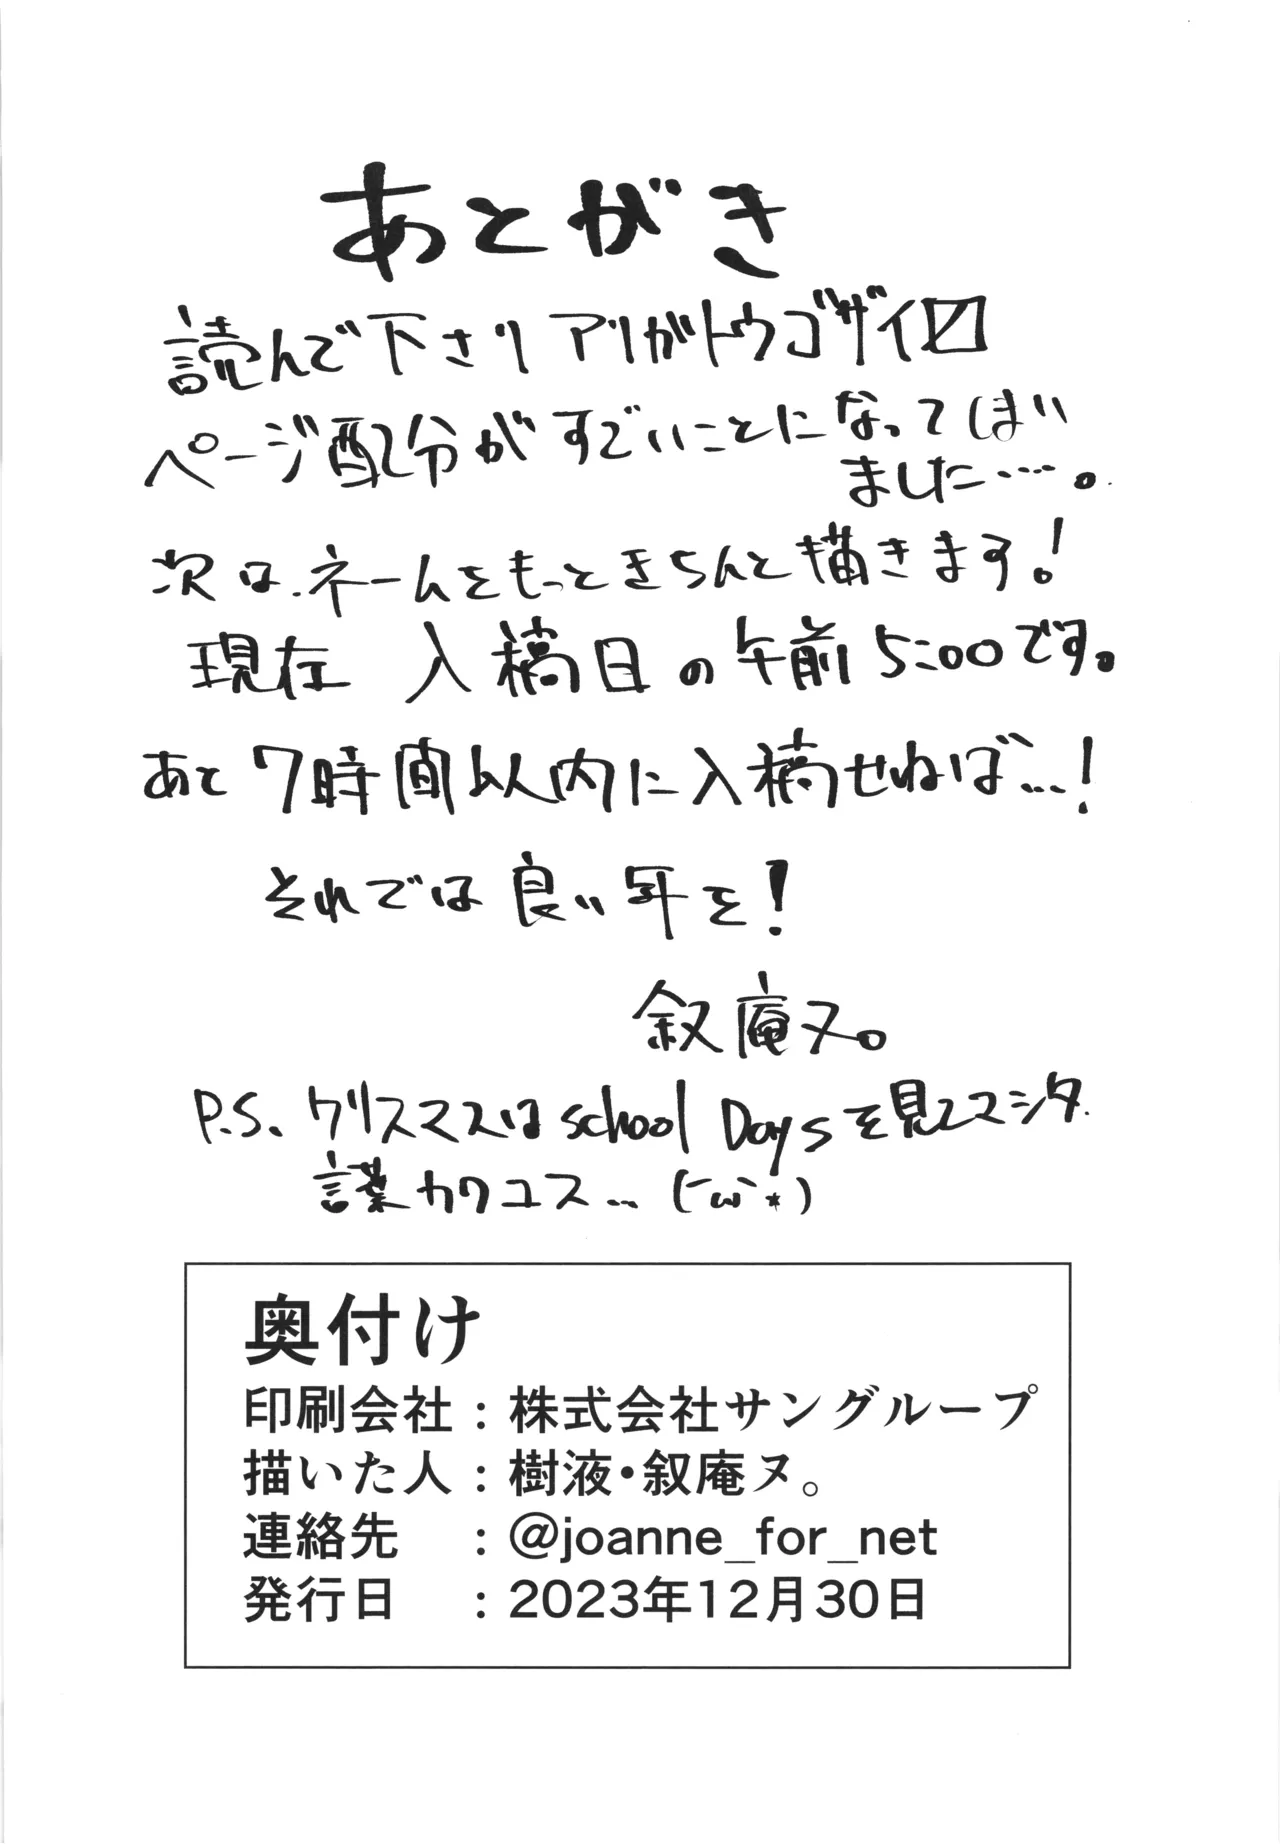 あとがき
読んで下さりアリガトウゴザイ〼
ページ配分がすごいことになってしまい
ました….。
次は、ネームをもっときちんと描きます!
現在 入稿日の午前5:00です。
あと7時間以内に入稿せねば…!
それでは良い年を!
叙庵ヌ。
P.S. クリスマスはschool Daysを見てマシタ.
言葉カワユス… (´ω`*)
奥付け
印刷会社:株式会社サングループ
描いた人:樹液・叙庵ヌ。
連絡先 :@joanne_for_net
発行日 :2023年12月30日